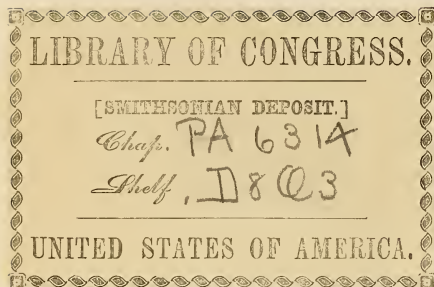 LIBRARY OF CONGRESS.
[SMITHSONIAN DEPOSIT.]
Chap. PA 6314
Shelf, .D8Q3
UNITED STATES OF AMERICA.